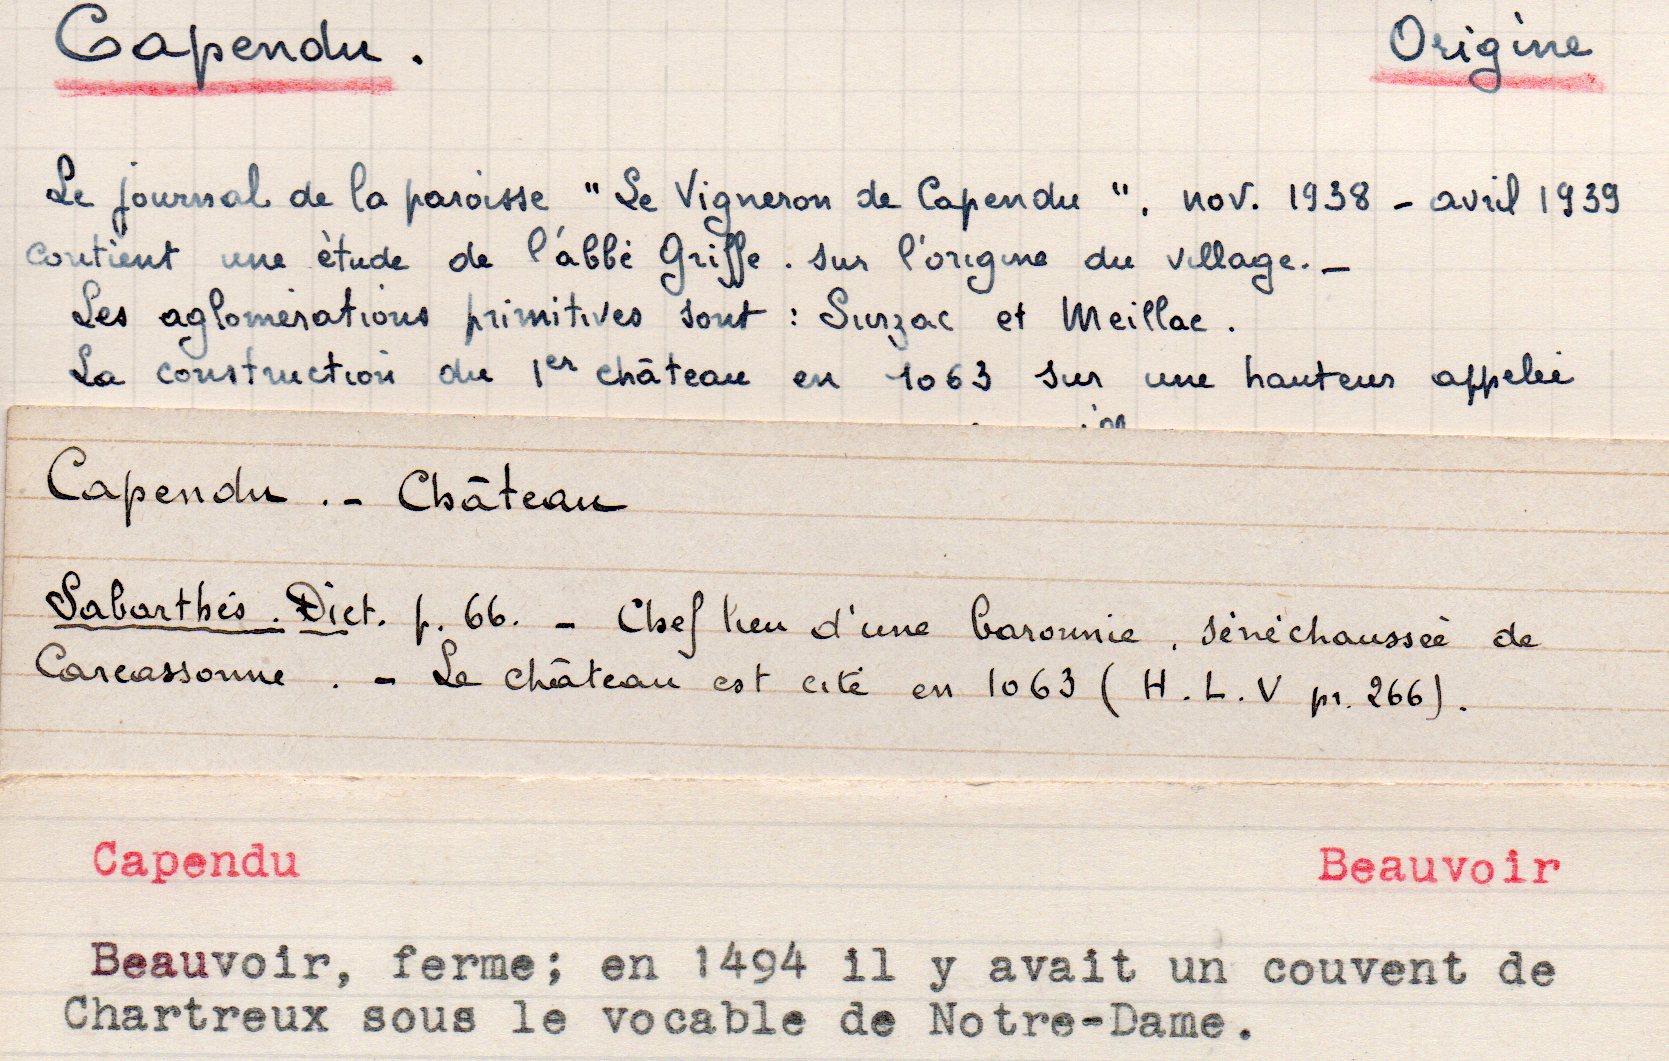 Capendu. Origine
Le journal de la paroisse "Le Vigneron de Capendu", nov. 1938 - avril 1939
contient une étude de l'abbé Griffe. sur l'origine du village. -
Les aglomérations primitives sont : Surzac et Meillac.
La construction du 1er château en 1063 sur une hauteur appelée
Capendu. - Château
Sabarthés. Dict. p. 66. - Chef lieu d'une baronnie, sénéchaussée de
Carcassonne. - Le château est cité en 1063 (H.L.V pr. 266).
Capendu Beauvoir
Beauvoir, ferme; en 1494 il y avait un couvent de
Chartreux sous le vocable de Notre-Dame.